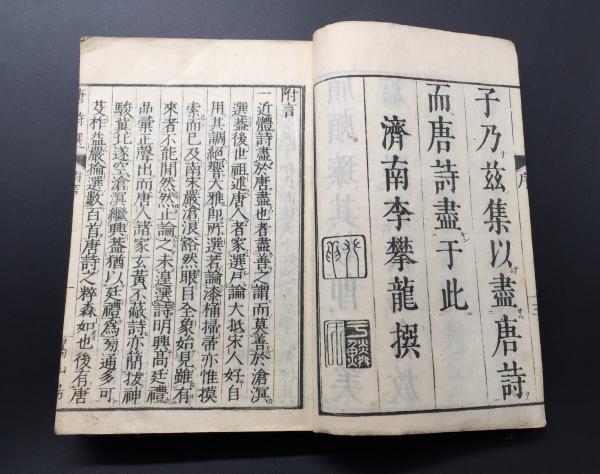 子乃茲集以盡唐詩
而唐詩盡于此
濟南李攀龍撰
序
附言
一近體詩盡於唐盡也者盡善之謂而莫善於滄溟
選蓋後世祖述唐人者家選戶論大抵宋人好自
用其調絕響大雅即所選若論漆桶掃帚亦惟摸
索而已及南宋嚴滄浪豁然眼目全象始見雖有
來者不能間然然止論之未遑選詩明興高廷禮
品彙正聲出而唐人諸家玄黃不蔽詩亦簡拔神
駿冀北遂空滄溟繼興蓋猶以廷禮為芻通多可
芟柞益嚴掄選數百首唐詩之粹森如也後有唐
唐詩選